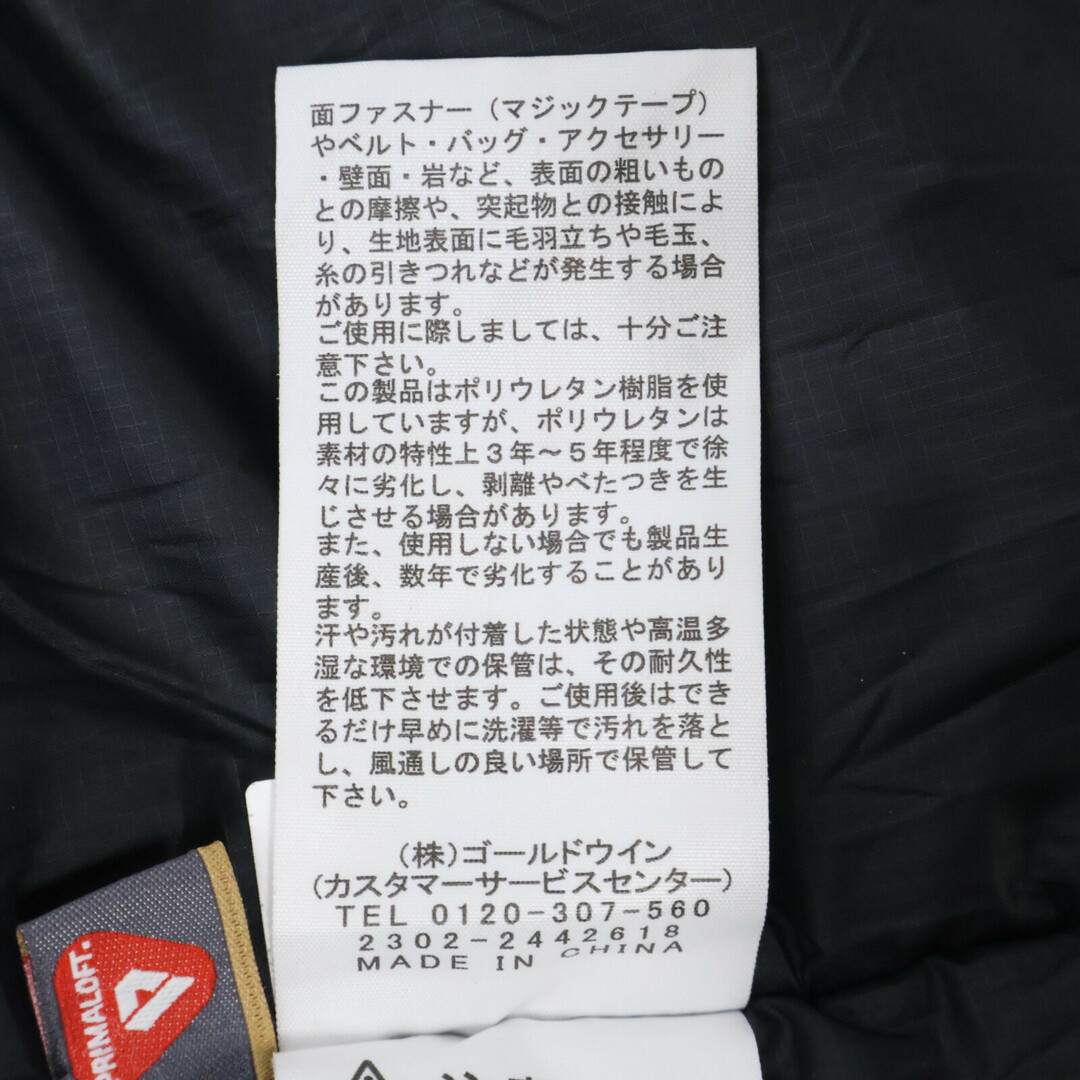 面ファスナー（マジックテープ）
やベルト・バッグ・アクセサリー
・壁面・岩など、表面の粗いもの
との摩擦や、突起物との接触によ
り、生地表面に毛羽立ちや毛玉、
糸の引きつれなどが発生する場合
があります。
ご使用に際しましては、十分ご注
意下さい。
この製品はポリウレタン樹脂を使
用していますが、ポリウレタンは
素材の特性上３年～５年程度で徐
々に劣化し、剥離やべたつきを生
じさせる場合があります。
また、使用しない場合でも製品生
産後、数年で劣化することがあり
ます。
汗や汚れが付着した状態や高温多
湿な環境での保管は、その耐久性
を低下させます。ご使用後はでき
るだけ早めに洗濯等で汚れを落と
し、風通しの良い場所で保管して
下さい。
（株）ゴールドウイン
（カスタマーサービスセンター）
TEL 0120-307-560
2302-2442618
MADE IN CHINA
PRIMALOFT.